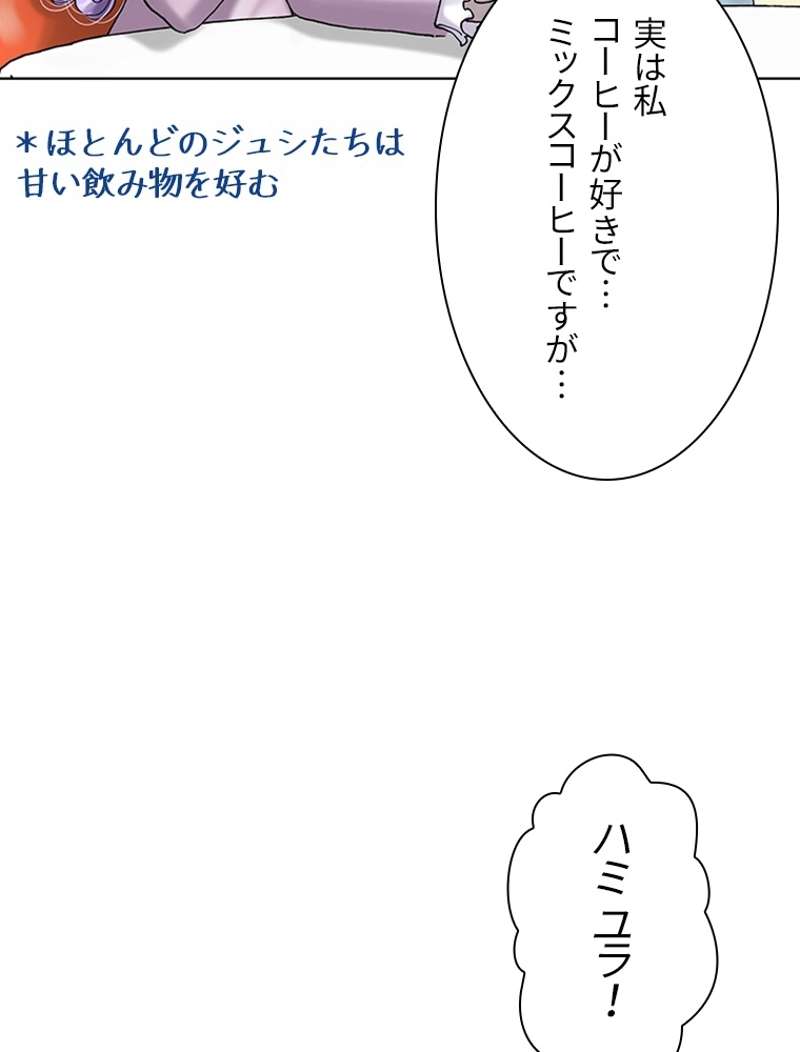 実は私
コーヒーが好きで…
ミックスコーヒーですが…
＊ほとんどのジュシたちは
甘い飲み物を好む
ハミュラ！